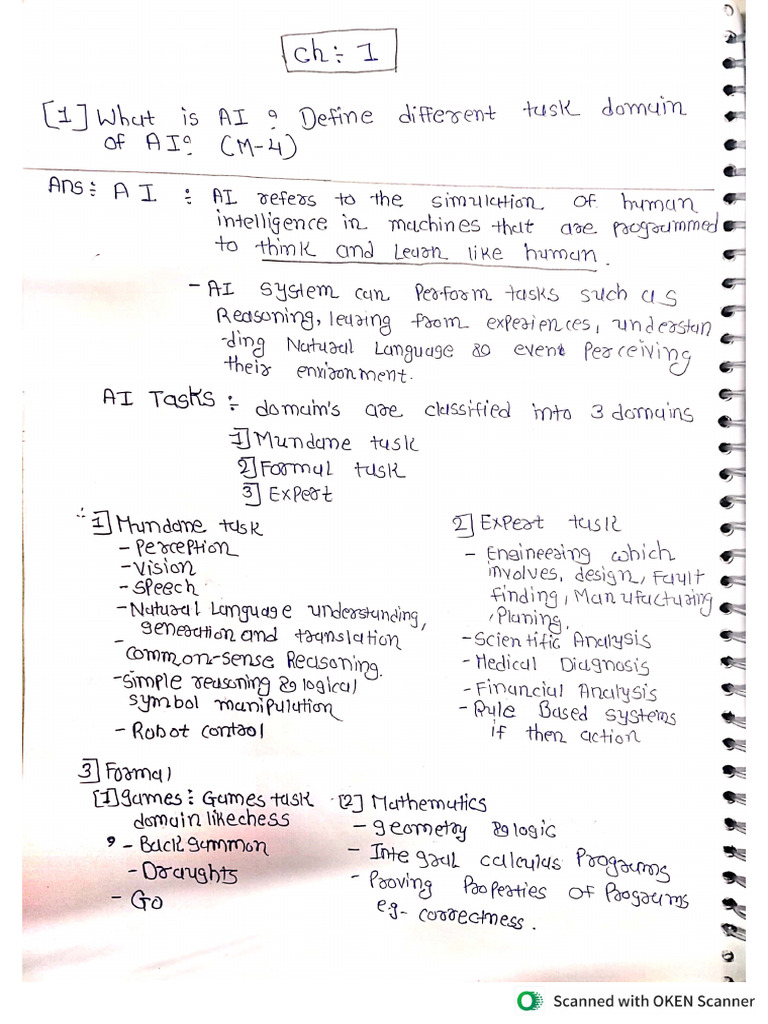 Ch÷ 1
[1] What is AI ? Define different task domain
of AI? (M-4)
Ans÷ AI : AI refers to the simulation of human
intelligence in machines that are programmed
to think and Learn like human.
- AI system can Perform tasks such as
Reasoning, learing from experiences, understan
-ding Natural Language & event Perceiving
their environment.
AI Tasks ÷ domain's are classified into 3 domains
1] Mundane task
2] Formal task
3] Expert
1] Mundane task
- Perception
- Vision
- Speech
- Natural Language understanding,
generation and translation
- Common-sense Reasoning.
- Simple reasoning & logical
symbol manipulation
- Robot control
2] Expert task
- Engineering which
involves, design, Fault
finding, Manufacturing
, Planing.
- Scientific Analysis
- Medical Diagnosis
- Financial Analysis
- Rule Based systems
if then action
3] Formal
[1] games : Games task
domain like chess
, - Backgammon
- Draughts
- Go
[2] Mathematics
- geometry & logic
- Integral calculas Programs
- Proving Properties of Programs
eg- correctness.
Scanned with OKEN Scanner